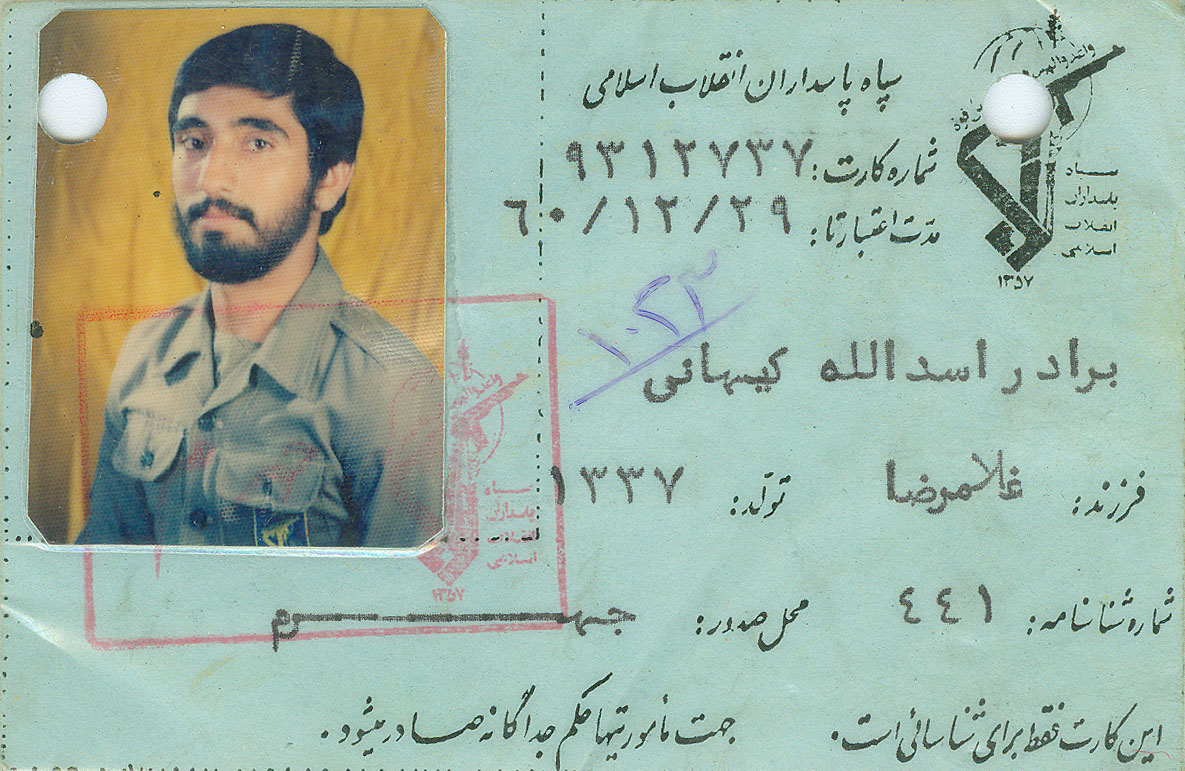 سپاه پاسداران انقلاب اسلامی
شماره کارت: ۹۳۱۲۷۳۷
مدت اعتبار تا: ۶۰/۱۲/۲۹
سپاه
پاسداران
انقلاب
اسلامی
۱۳۵۷
۱۰۲۳
برادر اسدالله کیهائی
فرزند: غلامرضا تولد: ۱۳۳۷
شماره شناسنامه: ۴۴۱ محل صدور: جهرم
این کارت فقط برای شناسائی است. جهت مأموریتها حکم جداگانه صادر میشود.
سپاه
پاسداران
انقلاب
اسلامی
۱۳۵۷